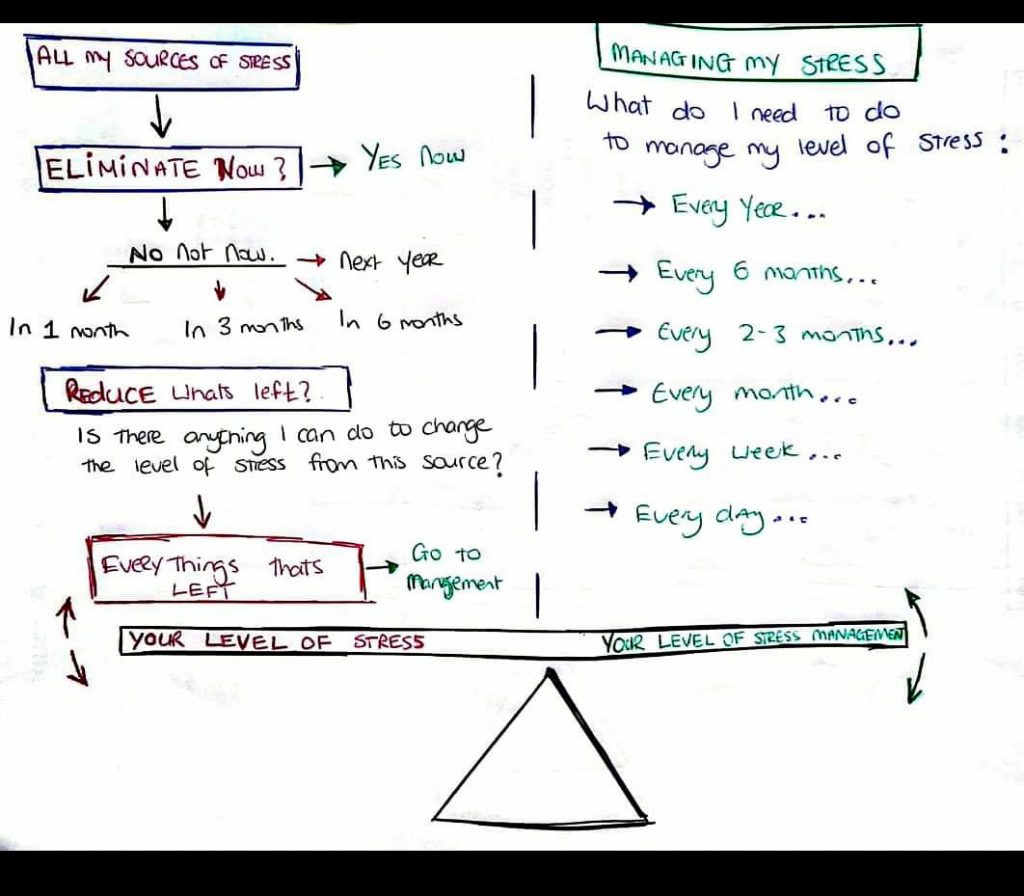 ALL my SOURCES OF STRESS
ELiMiNATE Now?
YES Now
No Not Now.
Next year
In 1 month
In 3 months
In 6 months
REDUCE Whats left?
Is there anything I can do to change
the level of stress from this source?
Every Things thats
LEFT
Go to
management
YOUR LEVEL OF STRESS
MANAGING my STRESS
What do I need to do
to manage my level of stress:
Every Year...
Every 6 months...
Every 2-3 months...
Every month...
Every week...
Every day...
YOUR LEVEL OF STRESS MANAGEMENT